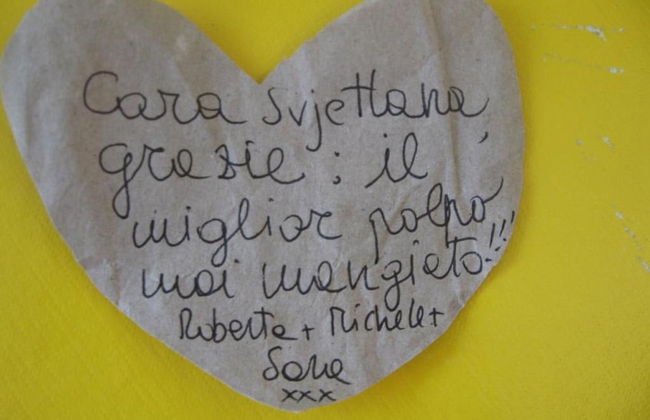 Cara Svjetlana,
grazie: il
miglior polpo
mai mangiato!!!
Roberta + Michele +
Sara
xxx